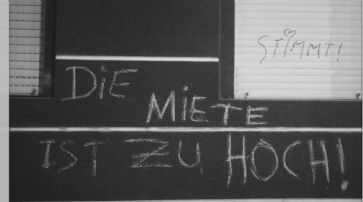 STIMMT!
DiE
MiETE
IST ZU HOCH!